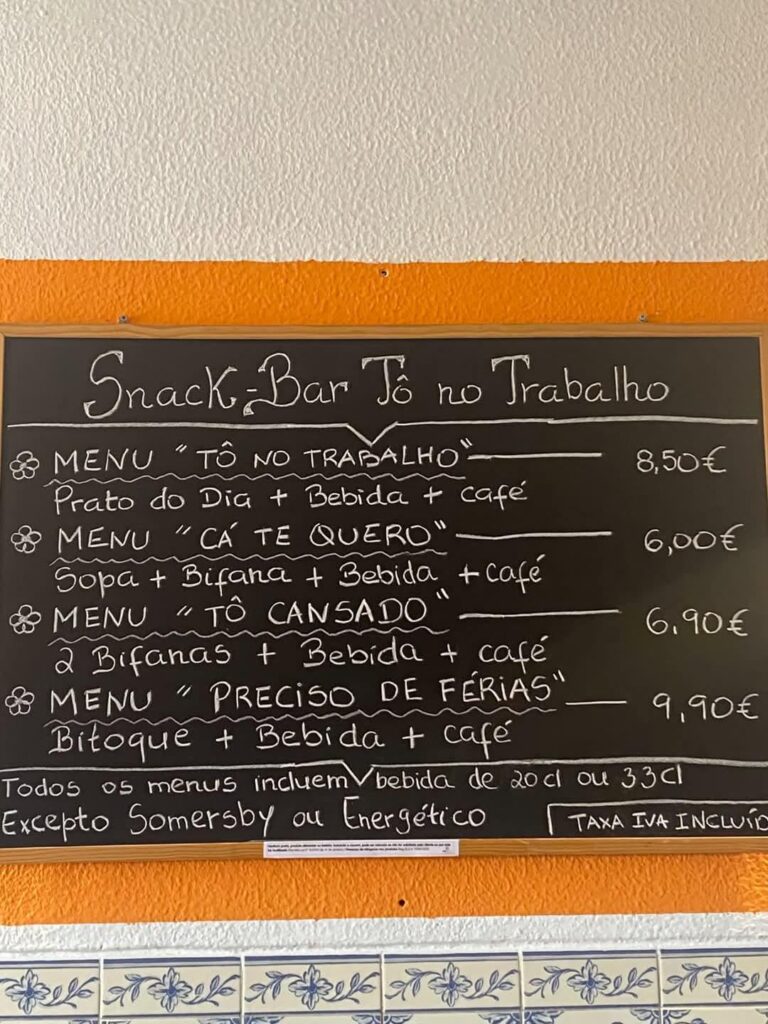 Snack-Bar Tô no Trabalho
MENU "TÔ NO TRABALHO" 8,50€
Prato do Dia + Bebida + café
MENU "CÁ TE QUERO" 6,00€
Sopa + Bifana + Bebida + café
MENU "TÔ CANSADO" 6,90€
2 Bifanas + Bebida + café
MENU "PRECISO DE FÉRIAS" 9,90€
Bitoque + Bebida + café
Todos os menus incluem bebida de 20cl ou 33cl
Excepto Somersby ou Energético
TAXA IVA INCLUÍD